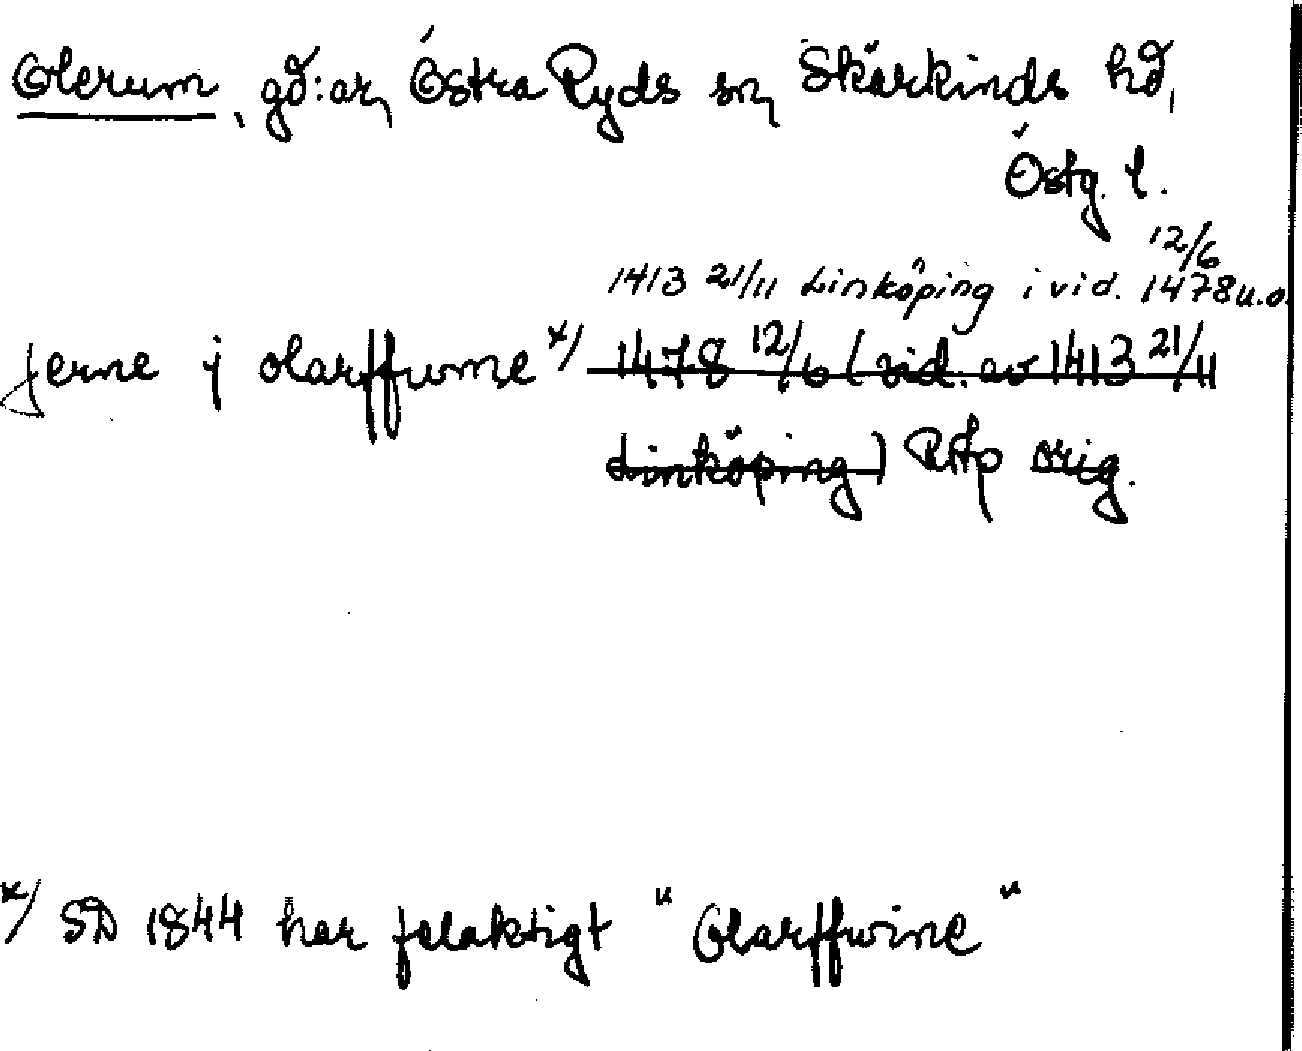 Olerum, gd:ar, Östra Ryds sn, Skärkinds hd,
Östg. l.
12/6
1413 21/11 Linköping i vid. 1478 u.o.
jerne j olarffwme x/ 1478 12/6 (vid. av 1413 21/11
Linköping) RAp orig.
x/ SD 1844 har felaktigt "Olarffwine"